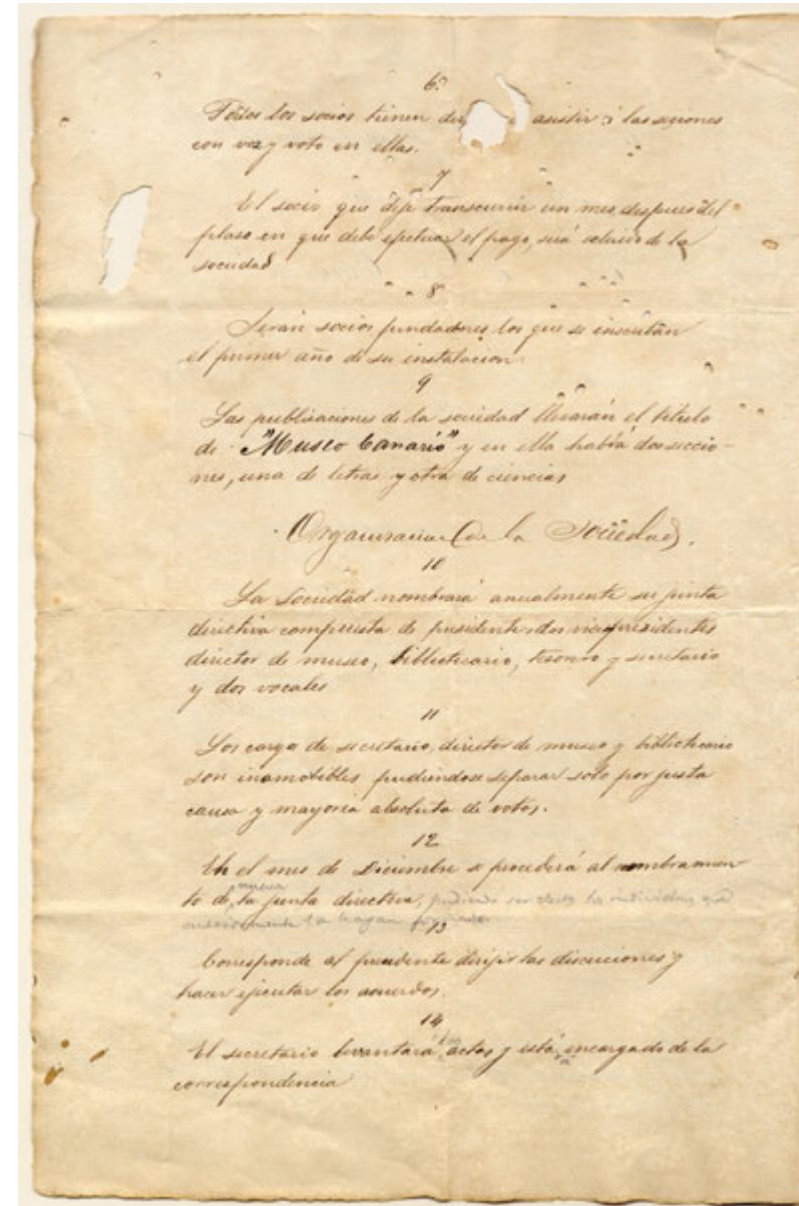 6º
Todos los socios tienen de asistir á las seciones
con voz y voto en ellas.
7
El socio que deje transcurrir un mes despues del
plaso en que debe efectuar el pago, será escluido de la
sociedad
8
Serán socios fundadores los que se inscriban
el primer año de su instalacion
9
Las publicaciones de la sociedad llevarán el titulo
de "Museo Canario" y en ella habrá dos seccio-
nes, una de letras y otra de ciencias
Organisacion de la Sociedad.
10
La Sociedad nombrará anualmente su junta
directiva compuesta de presidente dos vicepresidentes
director de museo, bibliotecario, tesorero y secretario
y dos vocales
11
Los cargo de secretario, director de museo y bibliotecario
son inamobibles pudiendose separar solo por justa
causa y mayoria absoluta de votos.
12
En el mes de Diciembre se procederá al nombramien-
nueva
to de la junta directiva, pudiendo ser los individuos que
anteriormente la hayan
13
Corresponde al presidente dirijir las discuciones y
hacer ejecutar los acuerdos.
14
El secretario levantará las actas y está encargado de la
correspondencia